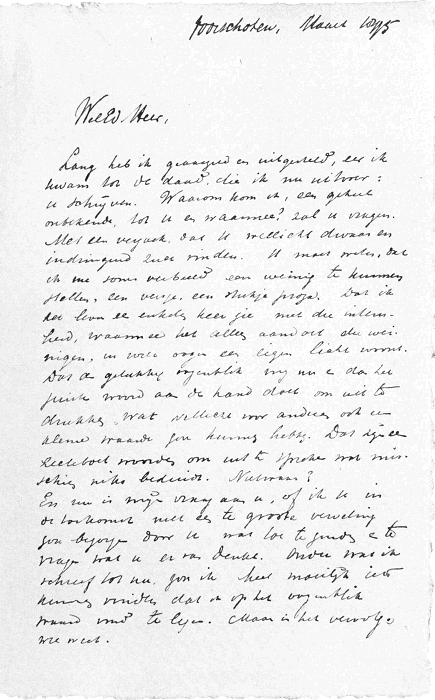 Voorschoten, Maart 1895
WelEd. Heer,
Lang heb ik geaarzeld en uitgesteld, eer ik
kwam tot de daad, die ik nu uitvoer:
u schrijven. Waarom kom ik, een geheel
onbekende, tot u en waarmee? zal u vragen.
Met een verzoek, dat u wellicht dwaas en
indringend zult vinden. U moet weten, dat
ik me soms verbeeld een weinig te kunnen
stellen, een versje, een stukje proza. Dat ik
het leven een enkele keer zie met die intens-
heid, waarmee het alles aandoet die wei-
nigen, in wier oogen een eigen licht woont.
Dat een gelukkig oogenblik mij nu en dan het
juiste woord aan de hand doet om uit te
drukken, wat wellicht voor anderen ook een
kleine waarde zou kunnen hebben. Dat zijn een
heeleboel woorden om uit te spreken wat mis-
schien niets beduidt. Nietwaar?
En nu is mijn vraag aan u, of ik u in
de toekomst niet een te groote verveling
zou bezorgen door u wat toe te zenden en te
vragen wat u er van denkt. Onder wat ik
schreef tot nu, zou ik heel moeilijk iets
kunnen vinden dat ik op het oogenblik
waard vind te lezen. Maar in het vervolg
wie weet.